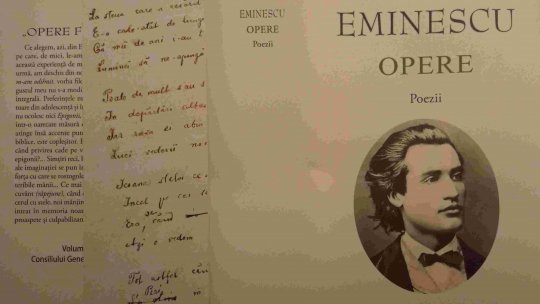 „OPERE F
Ce alegem, azi, din E
pe care, de mici, le-am
această experiență de m
urmă, am deschis din no
m-am odihnit, vorba filo
gustul meu nu s-a modi
integrală. Preferințele m
toare din adolescență și în
nu ocolesc nici Epigonii,
într-o oarecare măsură d
atinge însă accente pun
biblice, este copleșitor. E
când privirea cade pe v
epigonii?... Simțiri reci, h
ale imaginației se pun în
forța cu care se rostogole
teribile mânii... Ce mai
cuvânt (năpejoase), când
cerul cu stele, noi mânjim
intrat în memoria noast
proaspete și culpabilizan
Volum
Consiliului Gene
La steaua care a răsărit
E-o cale-atât de lungă
Că mii de ani i-au t
Luminii să ne-ajungă
Poate de mult s-a s
În depărtări albas
Iar raza ei abia
Luci vederii no
Icoana stelei ce
Încet pe cer
Era, când
Azi o vedem
Tot astfel când
EMINESCU
OPERE
Poezii
EMINESCU
OPERE
Poezii